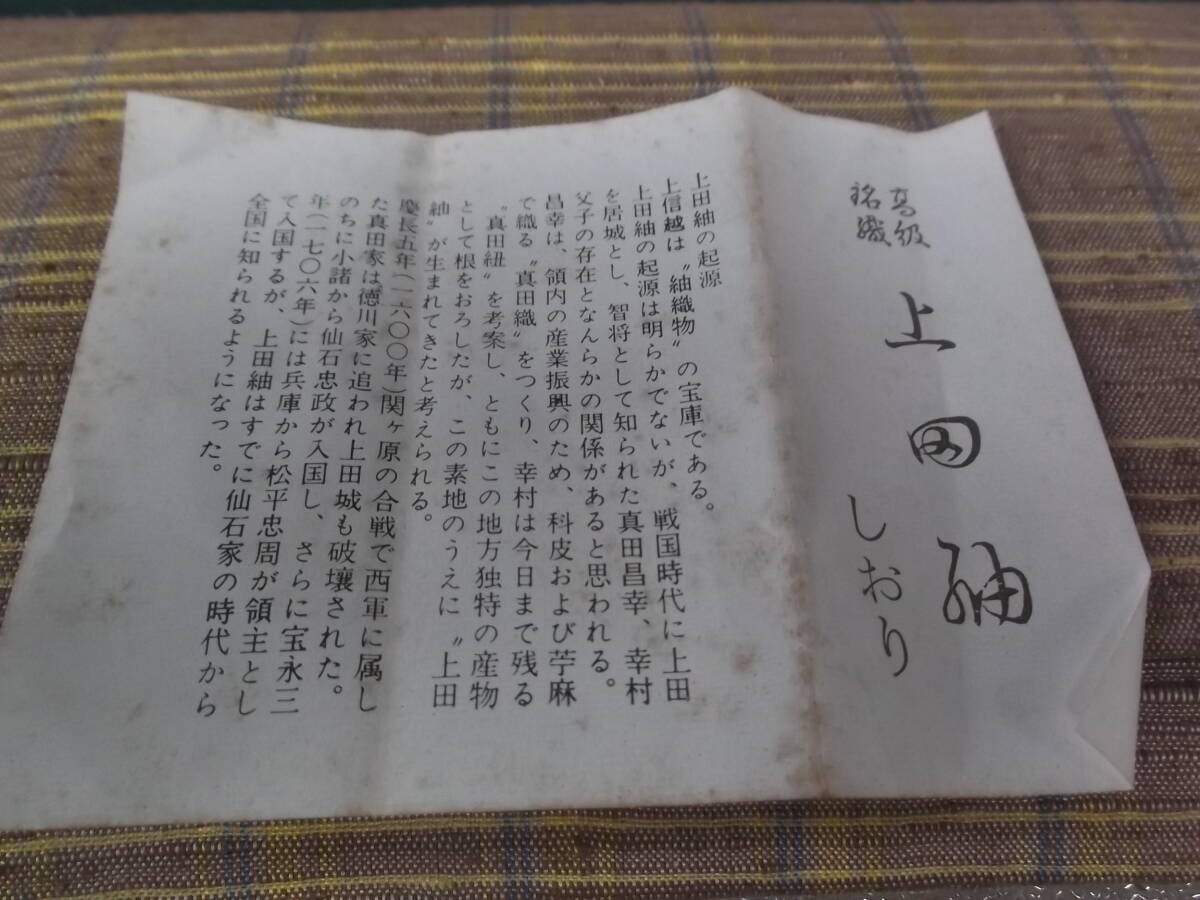 高級
銘織
上田紬
しおり
上田紬の起源
上信越は〝紬織物〟の宝庫である。
上田紬の起源は明らかでないが、戦国時代に上田
を居城とし、智将として知られた真田昌幸、幸村
父子の存在となんらかの関係があると思われる。
昌幸は、領内の産業振興のため、科皮および苧麻
で織る〝真田織〟をつくり、幸村は今日まで残る
〝真田紐〟を考案し、ともにこの地方独特の産物
として根をおろしたが、この素地のうえに〝上田
紬〟が生まれてきたと考えられる。
慶長五年(一六〇〇年)関ヶ原の合戦で西軍に属し
た真田家は徳川家に追われ上田城も破壊された。
のちに小諸から仙石忠政が入国し、さらに宝永三
年(一七〇六年)には兵庫から松平忠周が領主とし
て入国するが、上田紬はすでに仙石家の時代から
全国に知られるようになった。